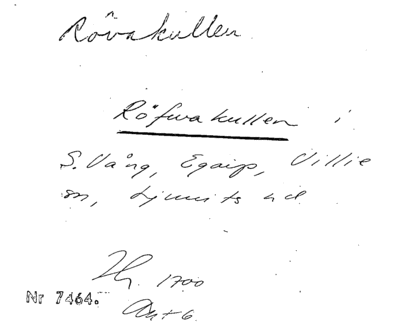 Rövakullen
Röfwakullen i
S. Vång, Egaip, Villie
sn, Ljunits hd
1700
Nr 7464.